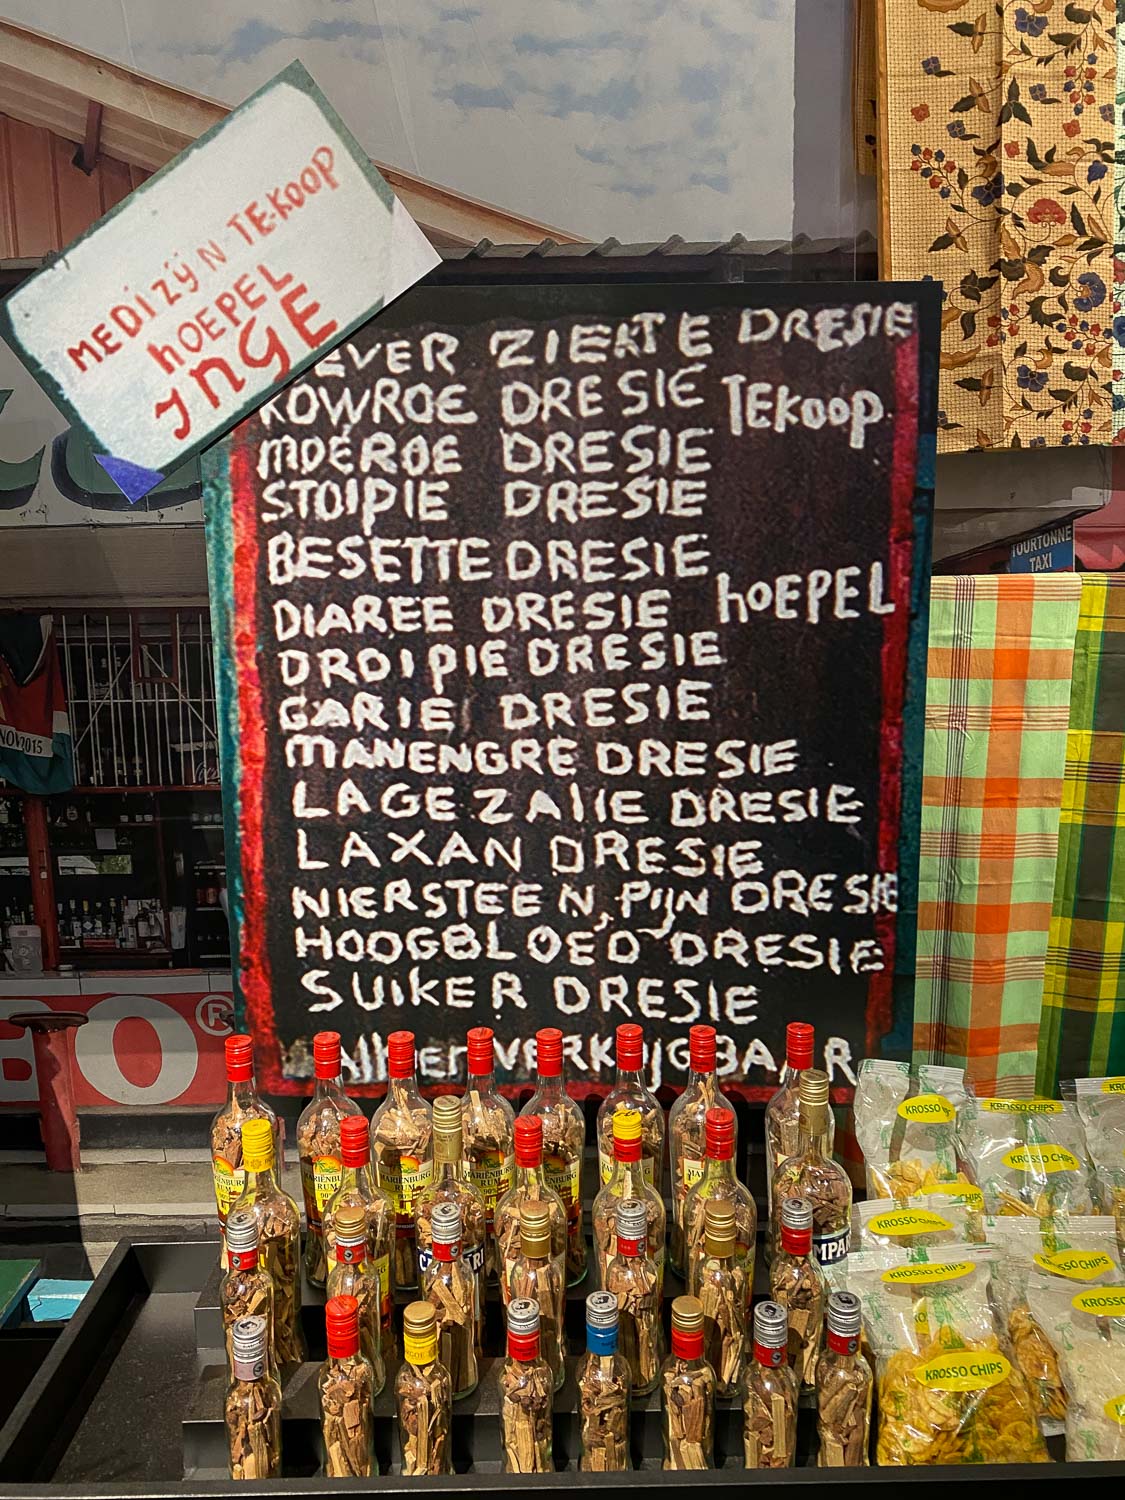 MEDIZÿN TE-KOOP
hOEPEL
JNGE
EVER ZIEKTE DRESIE
KOWROE DRESIE TEKOOP.
MOEROE DRESIE
STOIPIE DRESIE
BESETTE DRESIE
DIAREE DRESIE hOEPEL
DROIPIE DRESIE
GARIE DRESIE
MANENGRE DRESIE
LAGE ZAIIE DRESIE
LAXAN DRESIE
NIERSTEEN, PIJN DRESIE
HOOGBLOED DRESIE
SUIKER DRESIE
VERKRIJGBAAR
TOURTONNE
TAXI
NOV2015
BO®
MARIËNBURG
RUM
90%
MARIËNBURG
RUM
90%
KROSSO CHIPS
KROSSO CHIPS
KROSSO CHIPS
KROSSO CHIPS
KROSSO CHIPS
KROSSO CHIPS
KROSSO CHIPS